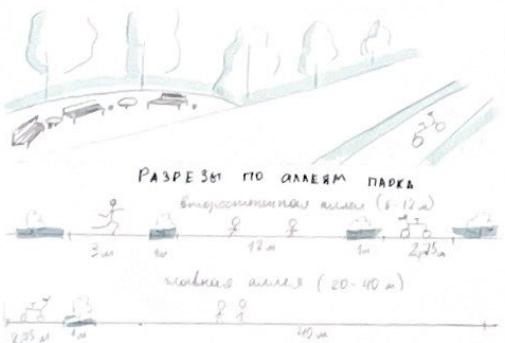 РАЗРЕЗЫ ПО АЛЛЕЯМ ПАРКА
второстепенная аллея (6-12 м)
3 м 1м 12 м 1м 2,25м
главная аллея (20-40 м)
2,25 м 1 м 40 м